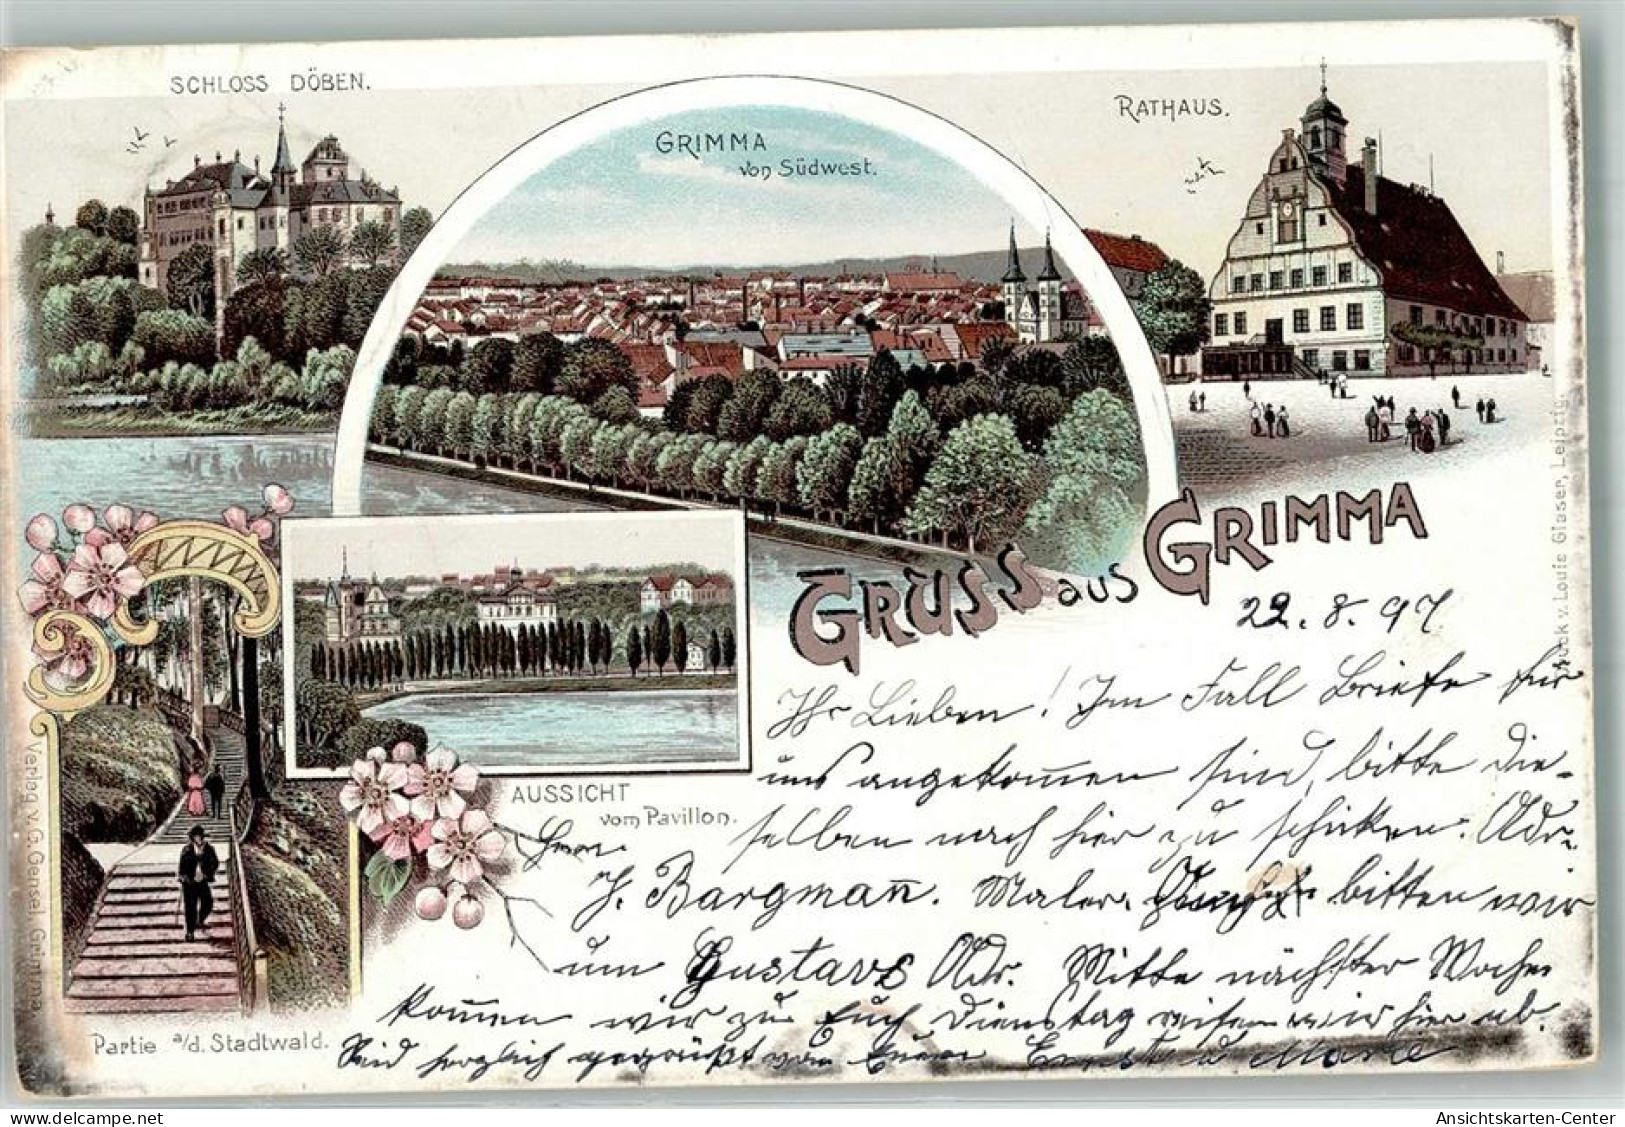 SCHLOSS DÖBEN.
GRIMMA
von Südwest.
RATHAUS.
GRUSS aus GRIMMA
22. 8. 97.
Ihr Lieben! Im Fall Briefe für
uns angekommen sind, bitte die-
selben nach hier zu schicken. Adr.
Herrn
J. Bargmann. Maler. bitten wir
um Gustavs Adr. Mitte nächster Woche
kommen wir zu Euch Dienstag reisen wir hier ab.
Seid herzlich gegrüßt von Euren Ernst u Marie
AUSSICHT
vom Pavillon.
Partie a/d. Stadtwald.
Verlag v. G. Gensel, Grimma.
Druck v. Louis Glaser, Leipzig.
Ansichtskarten-Center